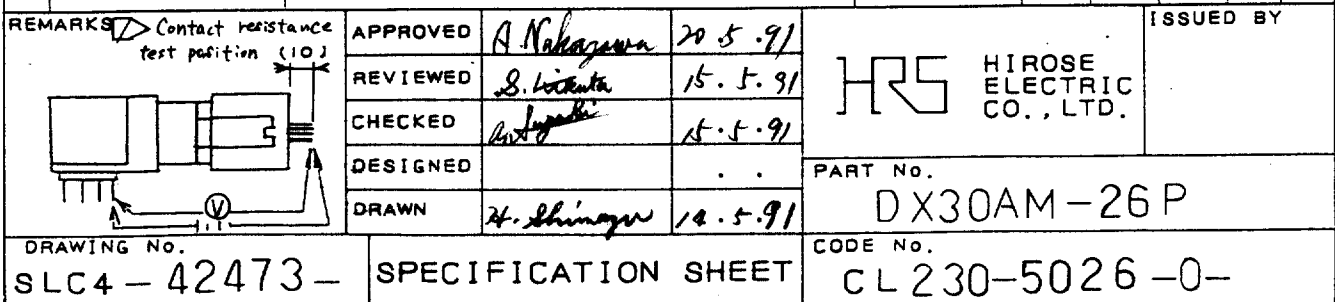 REMARKS 1 Contact resistance
test position (10)
V
APPROVED A. Nakazawa 20.5.91
REVIEWED S. 15.5.91
CHECKED 15.5.91
DESIGNED . .
DRAWN H. Shimazu 14.5.91
HRS HIROSE
ELECTRIC
CO., LTD.
ISSUED BY
PART No.
DX30AM-26P
DRAWING No.
SLC4-42473-
SPECIFICATION SHEET
CODE No.
CL230-5026-0-